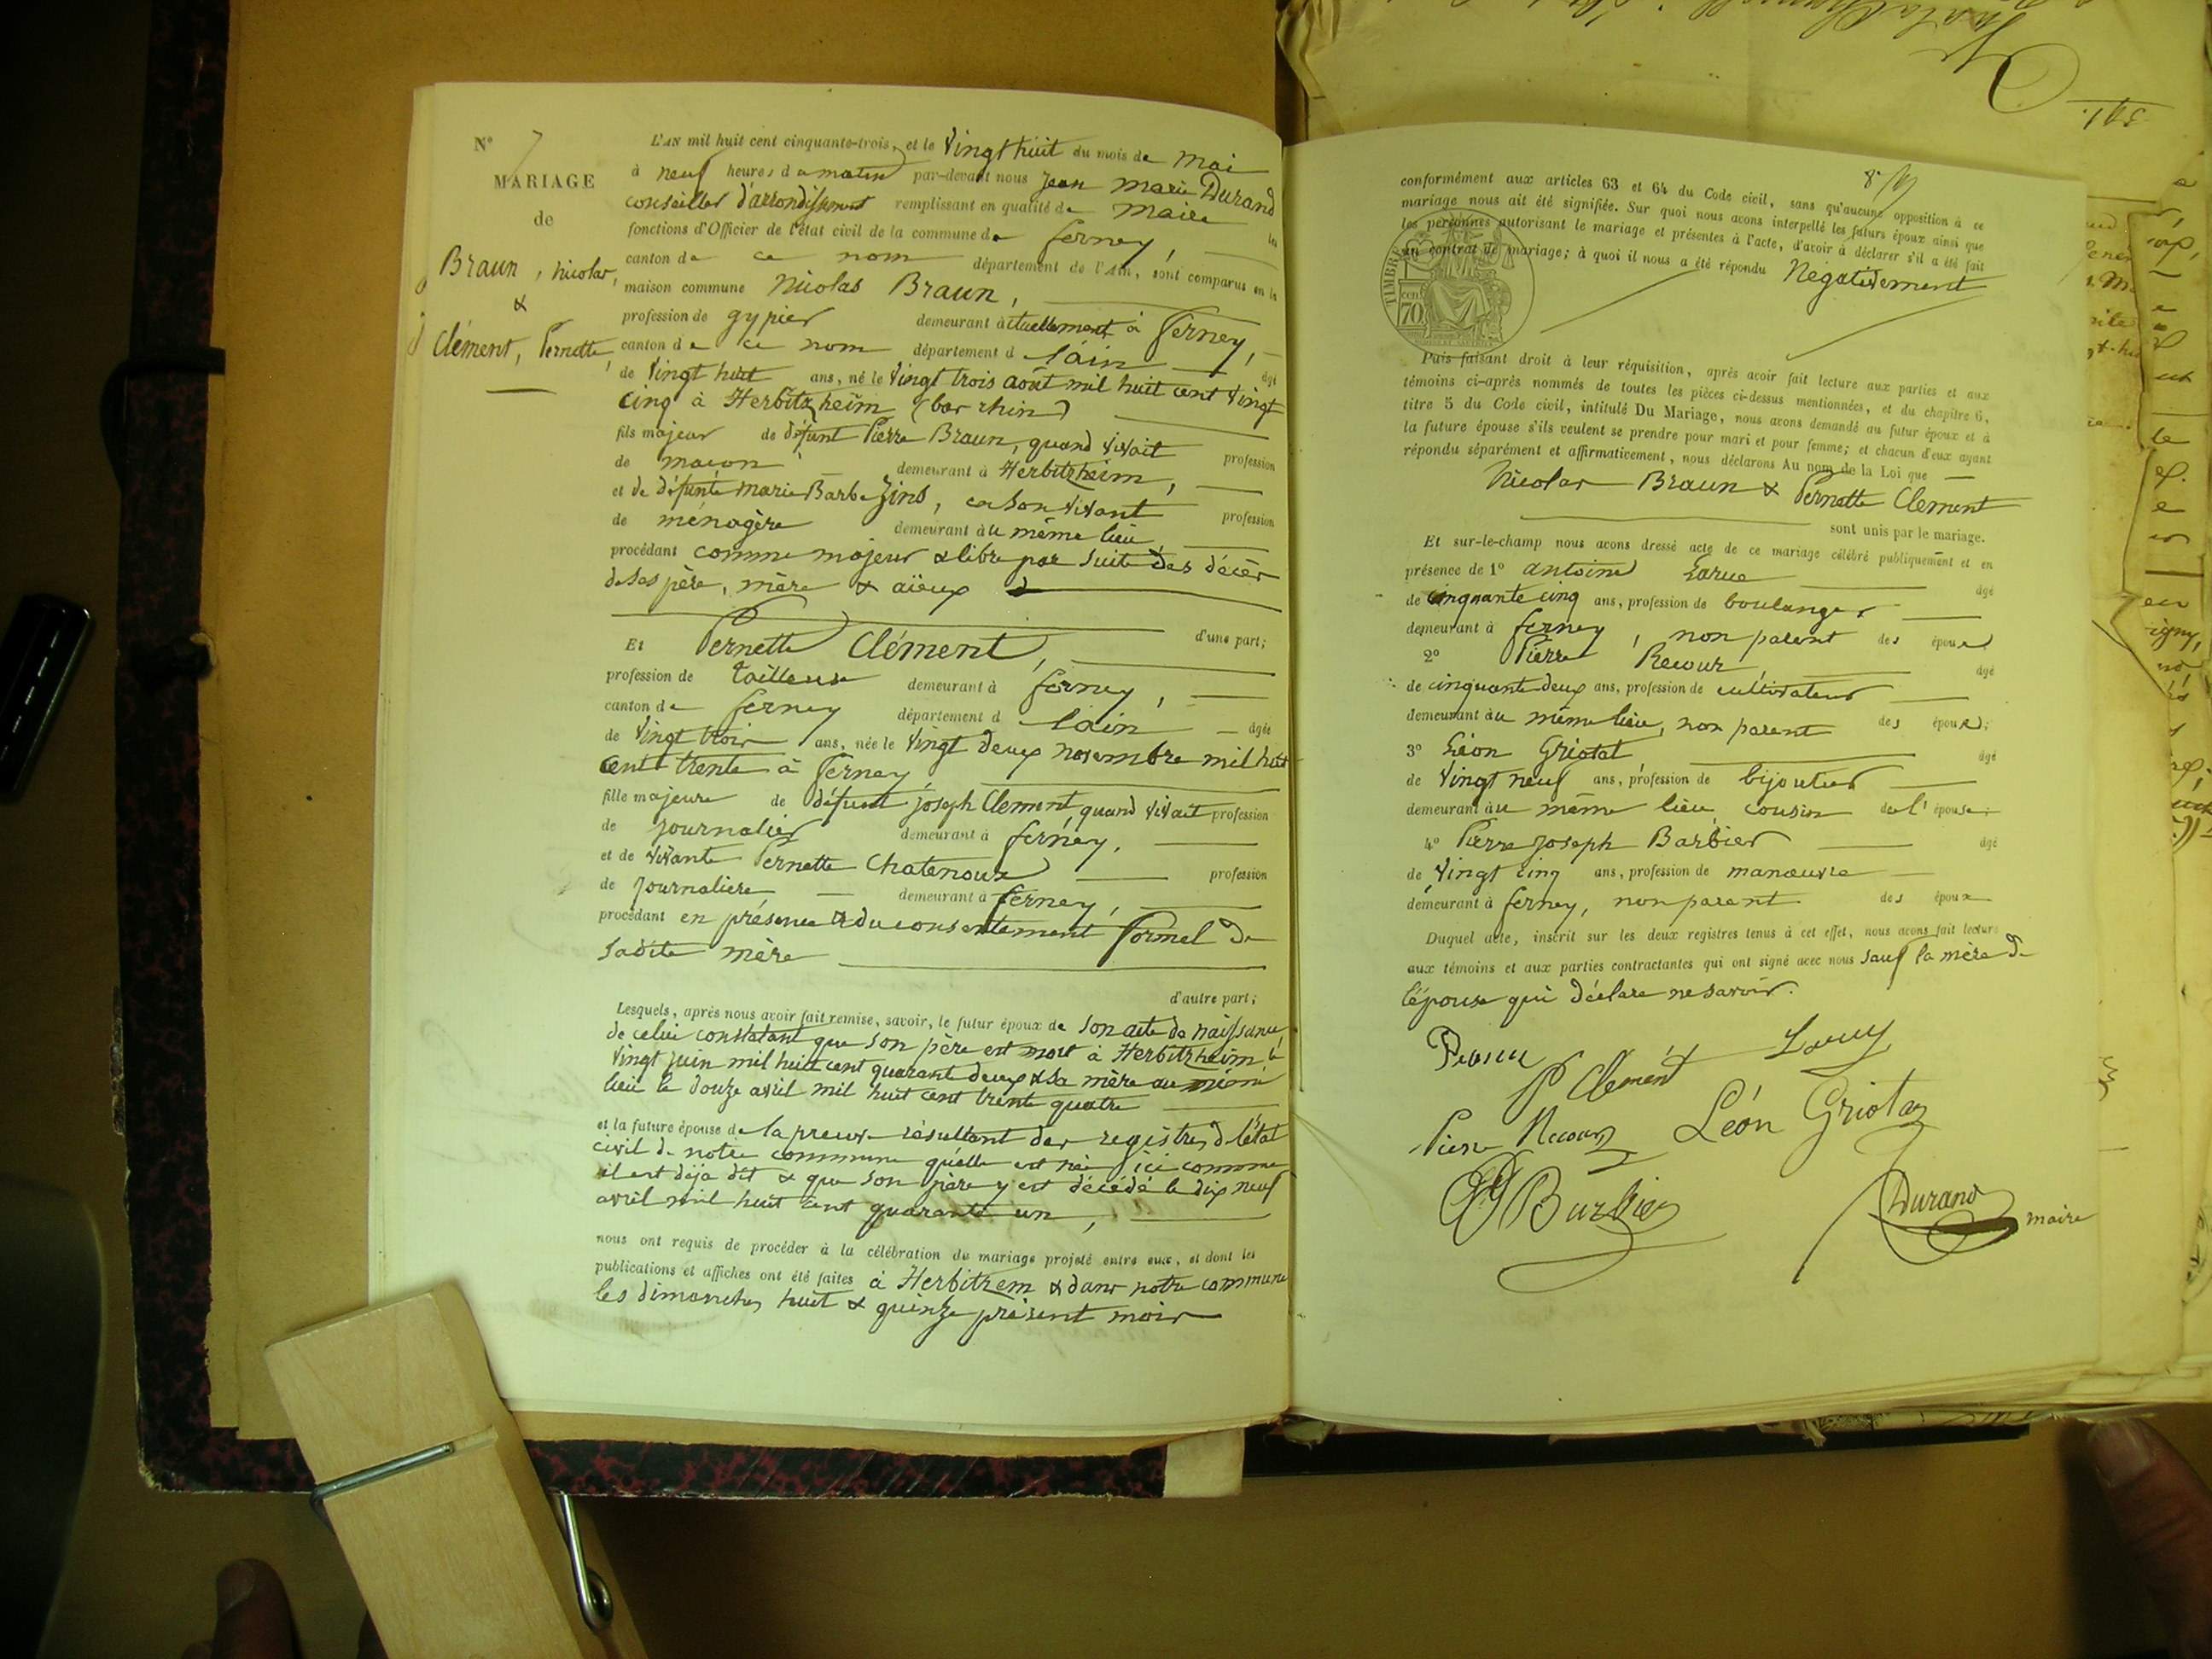 N° 7
MARIAGE
de
Braun, Nicolas,
&
Clément, Pernette,
L'AN mil huit cent cinquante-trois, et le vingt huit du mois de mai
à neuf heures du matin par-devant nous Jean Marie Durand
conseiller d'arrondissement remplissant en qualité de Maire les
fonctions d'Officier de l'état civil de la commune de ferney,
canton de ce nom département de l'Ain, sont comparus en la
maison commune Nicolas Braun,
profession de gypier demeurant actuellement à Ferney,
canton de ce nom département d l'ain âgé
de vingt huit ans, né le vingt trois août mil huit cent vingt
cinq à Herbitzheim (bas rhin)
fils majeur de défunt Pierre Braun, quand vivait profession
de maçon demeurant à Herbitzheim,
et de défunte Marie Barbe Zins, en son vivant profession
de ménagère demeurant au même lieu
procédant comme majeur & libre par suite des décès
de ses père, mère & aïeux
d'une part;
Et Pernette Clément,
profession de tailleuse demeurant à ferney,
canton de ferney département d l'ain âgée
de vingt trois ans, née le vingt deux novembre mil huit
cent trente à Ferney,
fille majeure de défunt joseph Clement, quand vivait profession
de journalier demeurant à ferney,
et de vivante Pernette Chatenoux profession
de journalière demeurant à ferney,
procédant en présence & du consentement formel de
sadite mère
d'autre part;
Lesquels, après nous avoir fait remise, savoir, le futur époux de son acte de naissance,
de celui constatant que son père est mort à Herbitzheim le
vingt juin mil huit cent quarante deux & sa mère au même
lieu le douze avril mil huit cent trente quatre
et la future épouse de la preuve résultant des registres d l'état
civil de notre commune qu'elle est née ici comme
il est déja dit & que son père y est décédé le dix neuf
avril mil huit cent quarante un,
nous ont requis de procéder à la célébration du mariage projeté entre eux, et dont les
publications et affiches ont été faites à Herbitzem & dans notre commune
les dimanches huit & quinze présent mois
conformément aux articles 63 et 64 du Code civil, sans qu'aucune opposition à ce
mariage nous ait été signifiée. Sur quoi nous avons interpellé les futurs époux ainsi que
les personnes autorisant le mariage et présentes à l'acte, d'avoir à déclarer s'il a été fait
un contrat de mariage; à quoi il nous a été répondu Negativement
TIMBRE
cen. 70
Puis faisant droit à leur réquisition, après avoir fait lecture aux parties et aux
témoins ci-après nommés de toutes les pièces ci-dessus mentionnées, et du chapitre 6,
titre 5 du Code civil, intitulé Du Mariage, nous avons demandé au futur époux et à
la future épouse s'ils veulent se prendre pour mari et pour femme; et chacun d'eux ayant
répondu séparément et affirmativement, nous déclarons Au nom de la Loi que
Nicolas Braun & Pernette Clement
sont unis par le mariage.
Et sur-le-champ nous avons dressé acte de ce mariage célébré publiquement et en
présence de 1° antoine âgé
de cinquante cinq ans, profession de boulanger
demeurant à ferney, non parent des époux
2° Pierre Recour, âgé
de cinquante deux ans, profession de cultivateur
demeurant au même lieu, non parent des époux;
3° Léon Griotat âgé
de vingt neuf ans, profession de bijoutier
demeurant au même lieu, cousin de l' épouse;
4° Pierre joseph Barbier âgé
de vingt cinq ans, profession de manœuvre
demeurant à ferney, non parent des époux
Duquel acte, inscrit sur les deux registres tenus à cet effet, nous avons fait lecture
aux témoins et aux parties contractantes qui ont signé avec nous sauf la mère de
l'épouse qui déclare ne savoir.
P Clement
Pierre Recour Léon Griotat
Barbier
Durand maire